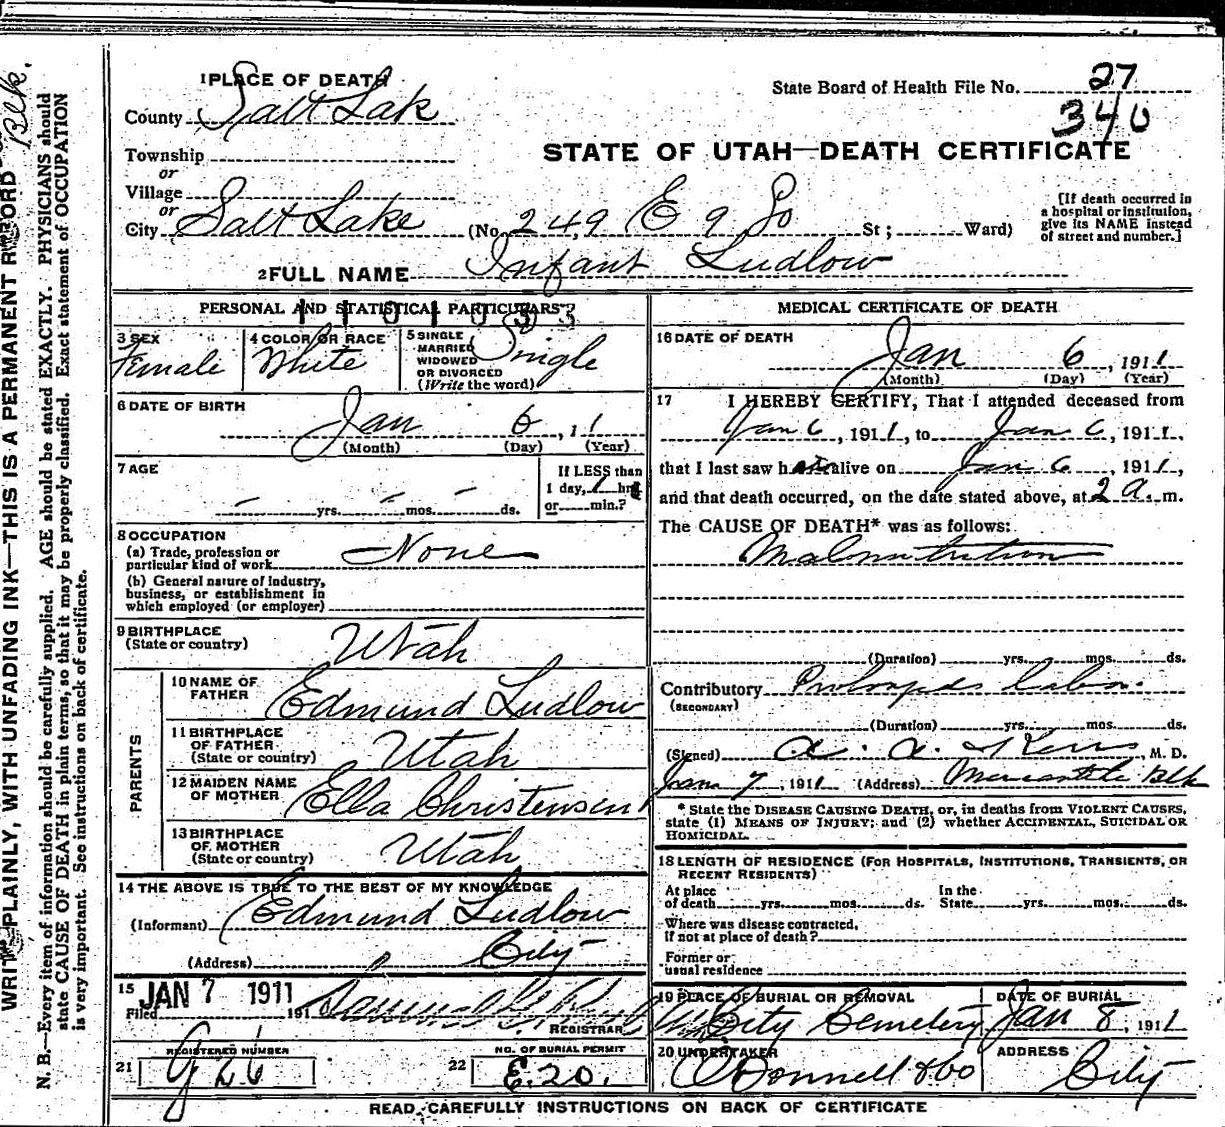 WRITE PLAINLY, WITH UNFADING INK—THIS IS A PERMANENT RECORD
Blk.
N. B.—Every item of information should be carefully supplied. AGE should be stated EXACTLY. PHYSICIANS should
state CAUSE OF DEATH in plain terms, so that it may be properly classified. Exact statement of OCCUPATION
is very important. See instructions on back of certificate.
1 PLACE OF DEATH
State Board of Health File No. 27
340
County Salt Lake
STATE OF UTAH—DEATH CERTIFICATE
Township
or
Village
or
City Salt Lake (No. 249 E 9 So St; Ward)
[If death occurred in
a hospital or institution,
give its NAME instead
of street and number.]
2 FULL NAME Infant Ludlow
PERSONAL AND STATISTICAL PARTICULARS
3 SEX
Female
4 COLOR OR RACE
White
5 SINGLE
MARRIED
WIDOWED
OR DIVORCED
(Write the word)
Single
6 DATE OF BIRTH
Jan 6, 11
(Month) (Day) (Year)
7 AGE
- yrs. - mos. - ds.
If LESS than
1 day, 1 hrs
or min.?
8 OCCUPATION
(a) Trade, profession or
particular kind of work None
(b) General nature of industry,
business, or establishment in
which employed (or employer)
9 BIRTHPLACE
(State or country) Utah
PARENTS
10 NAME OF
FATHER Edmund Ludlow
11 BIRTHPLACE
OF FATHER
(State or country) Utah
12 MAIDEN NAME
OF MOTHER Ella Christensen
13 BIRTHPLACE
OF MOTHER
(State or country) Utah
14 THE ABOVE IS TRUE TO THE BEST OF MY KNOWLEDGE
(Informant) Edmund Ludlow
(Address) City
15
Filed JAN 7 1911 191
REGISTRAR
REGISTERED NUMBER
21 G26
NO. OF BURIAL PERMIT
22 E.20.
MEDICAL CERTIFICATE OF DEATH
16 DATE OF DEATH
Jan 6, 1911
(Month) (Day) (Year)
17 I HEREBY CERTIFY, That I attended deceased from
Jan 6, 1911, to Jan 6, 1911,
that I last saw h alive on Jan 6, 1911,
and that death occurred, on the date stated above, at 2 a. m.
The CAUSE OF DEATH* was as follows:
Malnutrition
(Duration) yrs. mos. ds.
Contributory Prolonged Labor
(SECONDARY)
(Duration) yrs. mos. ds.
(Signed) A. A. Kerr, M. D.
Jan 7, 1911 (Address) Mercantile Blk
* State the DISEASE CAUSING DEATH, or, in deaths from VIOLENT CAUSES,
state (1) MEANS OF INJURY; and (2) whether ACCIDENTAL, SUICIDAL OR
HOMICIDAL.
18 LENGTH OF RESIDENCE (FOR HOSPITALS, INSTITUTIONS, TRANSIENTS, OR
RECENT RESIDENTS)
At place
of death yrs. mos. ds. In the
State yrs. mos. ds.
Where was disease contracted,
If not at place of death?
Former or
usual residence
19 PLACE OF BURIAL OR REMOVAL
City Cemetery
DATE OF BURIAL
Jan 8, 1911
20 UNDERTAKER
O'Donnell & Co
ADDRESS
City
READ CAREFULLY INSTRUCTIONS ON BACK OF CERTIFICATE